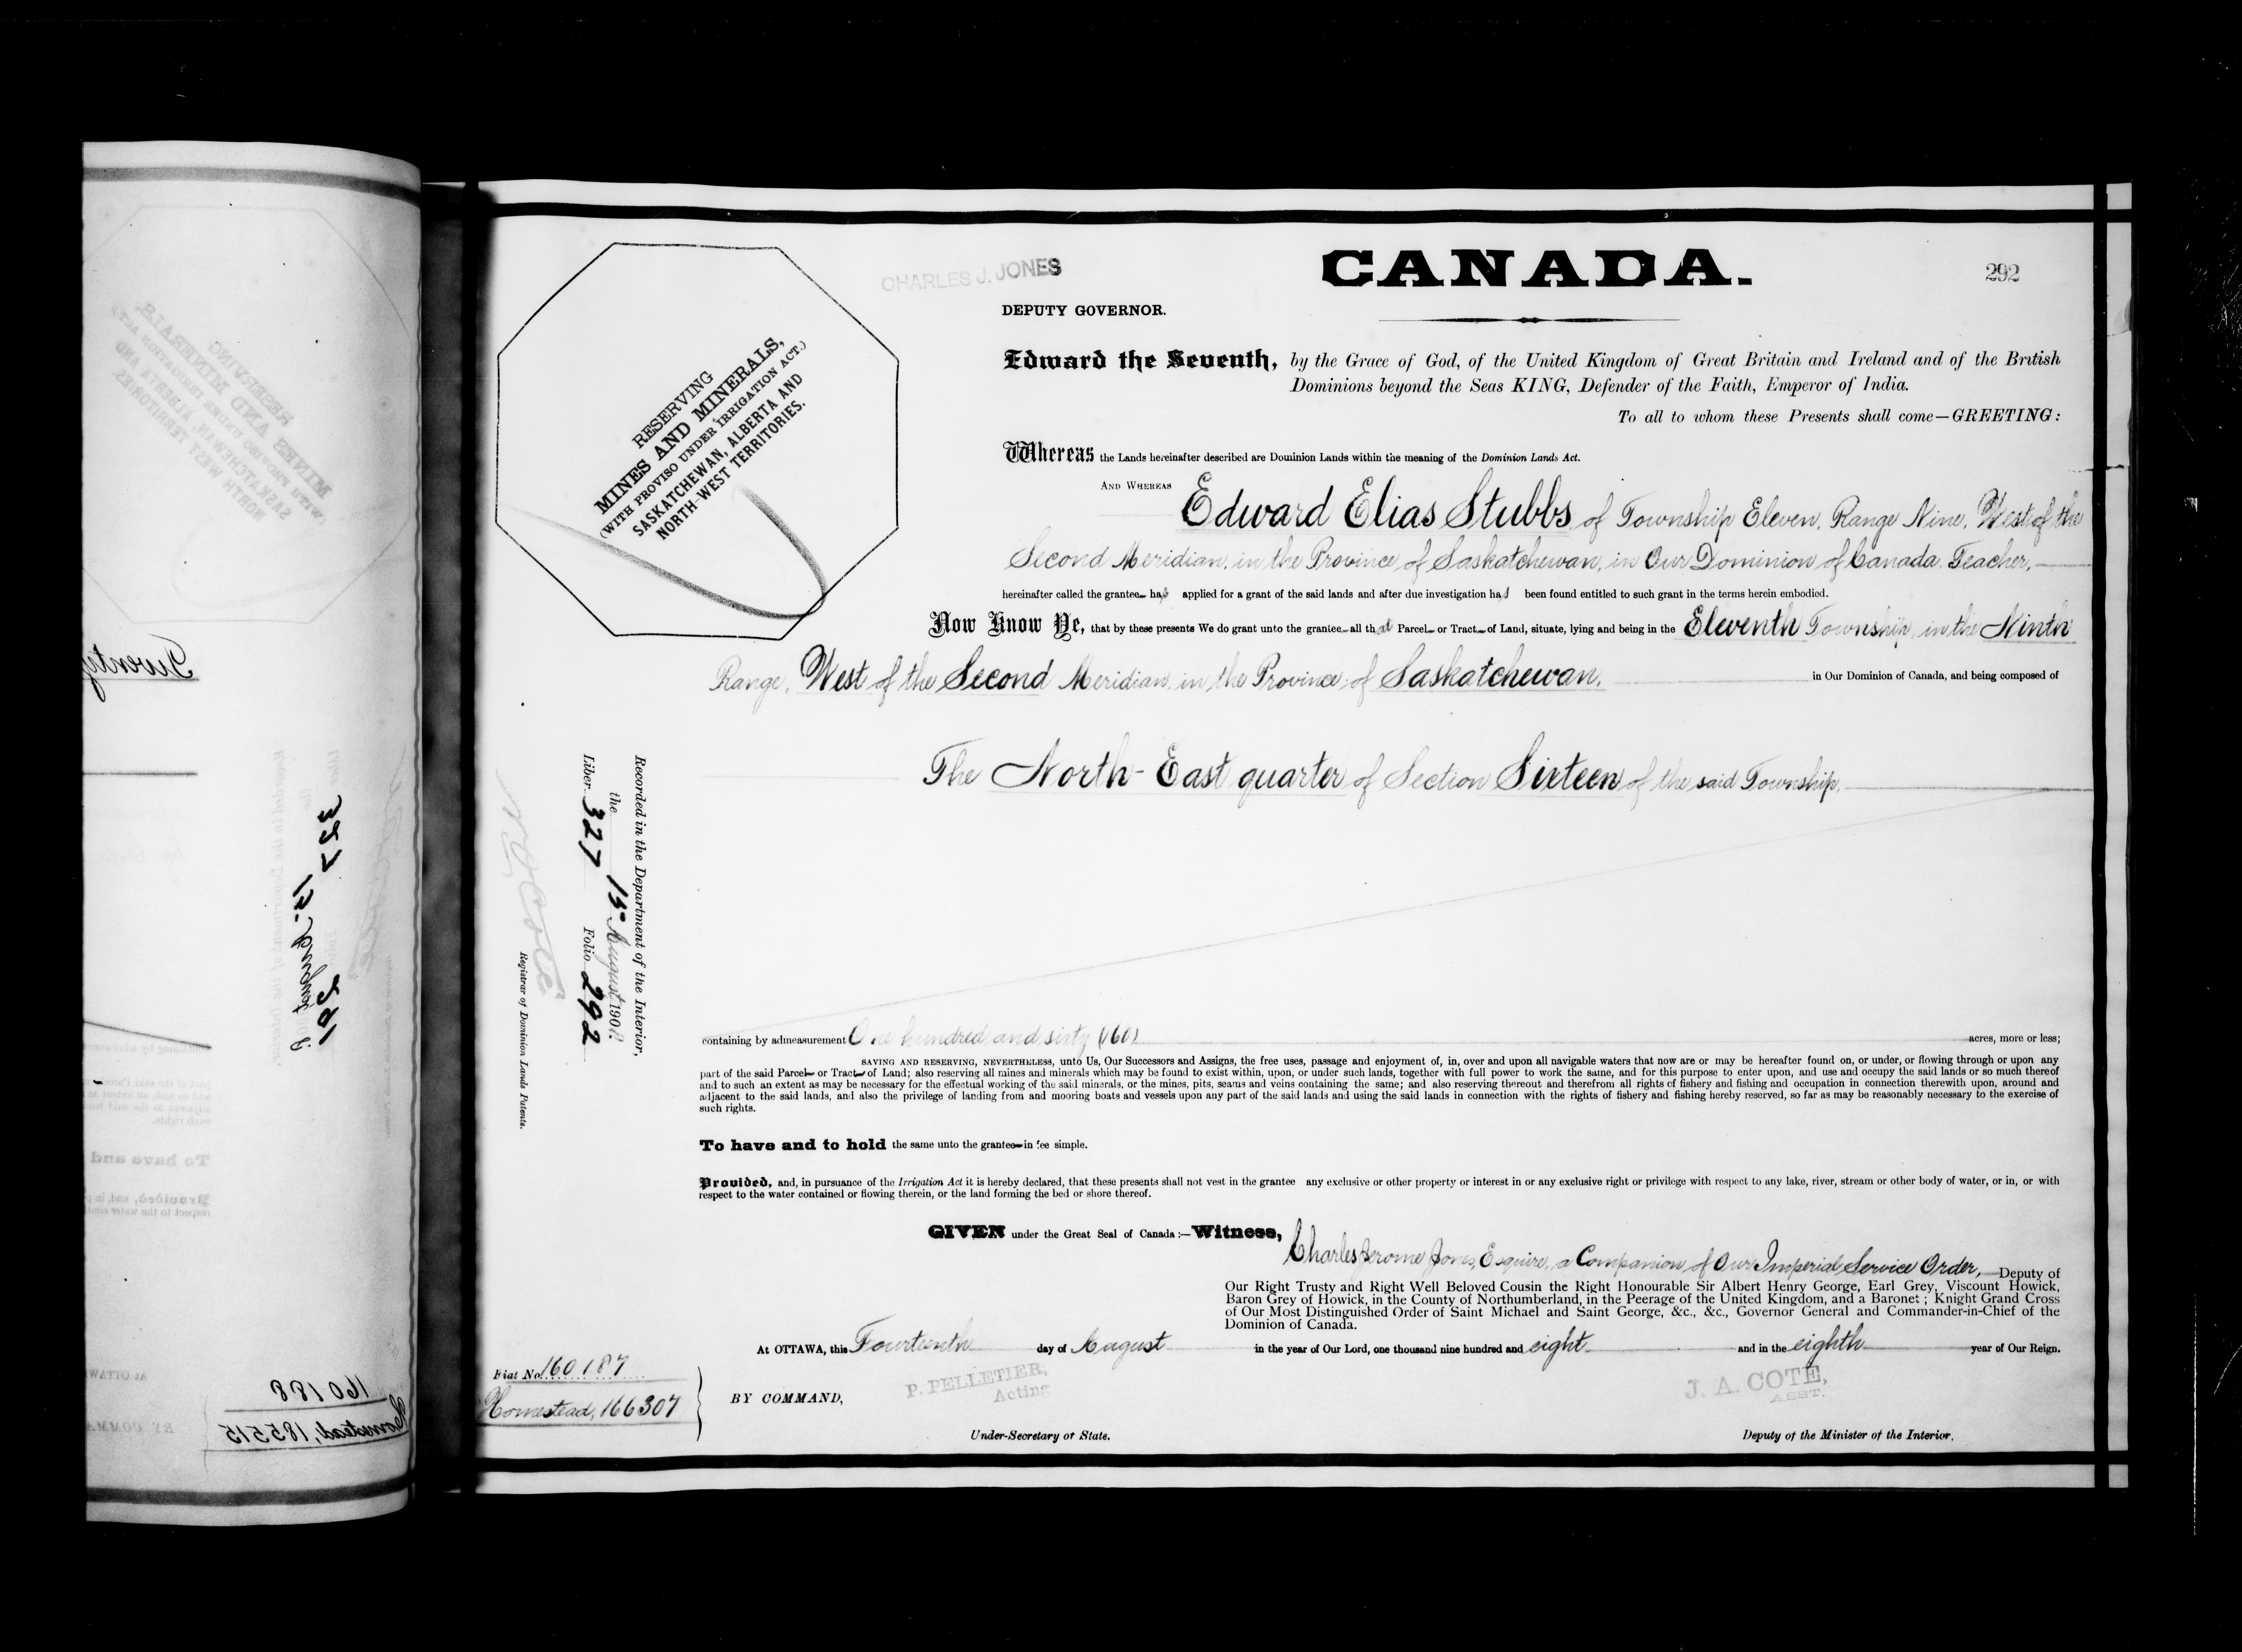 CHARLES J. JONES
CANADA.
292
DEPUTY GOVERNOR.
RESERVING
MINES AND MINERALS,
(WITH PROVISO UNDER IRRIGATION ACT.)
SASKATCHEWAN, ALBERTA AND
NORTH-WEST TERRITORIES.
Edward the Seventh, by the Grace of God, of the United Kingdom of Great Britain and Ireland and of the British
Dominions beyond the Seas KING, Defender of the Faith, Emperor of India.
To all to whom these Presents shall come—GREETING:
Whereas the Lands hereinafter described are Dominion Lands within the meaning of the Dominion Lands Act.
AND WHEREAS Edward Elias Stubbs, of Township Eleven, Range Nine, West of the
Second Meridian, in the Province of Saskatchewan, in Our Dominion of Canada, Teacher,
hereinafter called the grantee has applied for a grant of the said lands and after due investigation has been found entitled to such grant in the terms herein embodied.
Now Know Ye, that by these presents We do grant unto the grantee all that Parcel or Tract of Land, situate, lying and being in the Eleventh Township, in the Ninth
Range, West of the Second Meridian, in the Province of Saskatchewan, in Our Dominion of Canada, and being composed of
The North-East quarter of Section Sixteen of the said Township,
Recorded in the Department of the Interior,
the 15 August 1908
Liber 327 Folio 292
Registrar of Dominion Lands Patents.
containing by admeasurement One hundred and sixty (160) acres, more or less;
SAVING AND RESERVING, NEVERTHELESS, unto Us, Our Successors and Assigns, the free uses, passage and enjoyment of, in, over and upon all navigable waters that now are or may be hereafter found on, or under, or flowing through or upon any
part of the said Parcel or Tract of Land; also reserving all mines and minerals which may be found to exist within, upon, or under such lands, together with full power to work the same, and for this purpose to enter upon, and use and occupy the said lands or so much thereof
and to such an extent as may be necessary for the effectual working of the said minerals, or the mines, pits, seams and veins containing the same; and also reserving thereout and therefrom all rights of fishery and fishing and occupation in connection therewith upon, around and
adjacent to the said lands, and also the privilege of landing from and mooring boats and vessels upon any part of the said lands and using the said lands in connection with the rights of fishery and fishing hereby reserved, so far as may be reasonably necessary to the exercise of
such rights.
To have and to hold the same unto the grantee in fee simple.
Provided, and, in pursuance of the Irrigation Act it is hereby declared, that these presents shall not vest in the grantee any exclusive or other property or interest in or any exclusive right or privilege with respect to any lake, river, stream or other body of water, or in, or with
respect to the water contained or flowing therein, or the land forming the bed or shore thereof.
GIVEN under the Great Seal of Canada:—Witness,
Charles Jerome Jones, Esquire, a Companion of Our Imperial Service Order, Deputy of
Our Right Trusty and Right Well Beloved Cousin the Right Honourable Sir Albert Henry George, Earl Grey, Viscount Howick,
Baron Grey of Howick, in the County of Northumberland, in the Peerage of the United Kingdom, and a Baronet; Knight Grand Cross
of Our Most Distinguished Order of Saint Michael and Saint George, &c., &c., Governor General and Commander-in-Chief of the
Dominion of Canada.
At OTTAWA, this Fourteenth day of August in the year of Our Lord, one thousand nine hundred and eight and in the eighth year of Our Reign.
Fiat No. 160187
Homestead, 166307
BY COMMAND,
P. PELLETIER,
Acting
Under-Secretary of State.
J. A. COTE,
ASST.
Deputy of the Minister of the Interior.